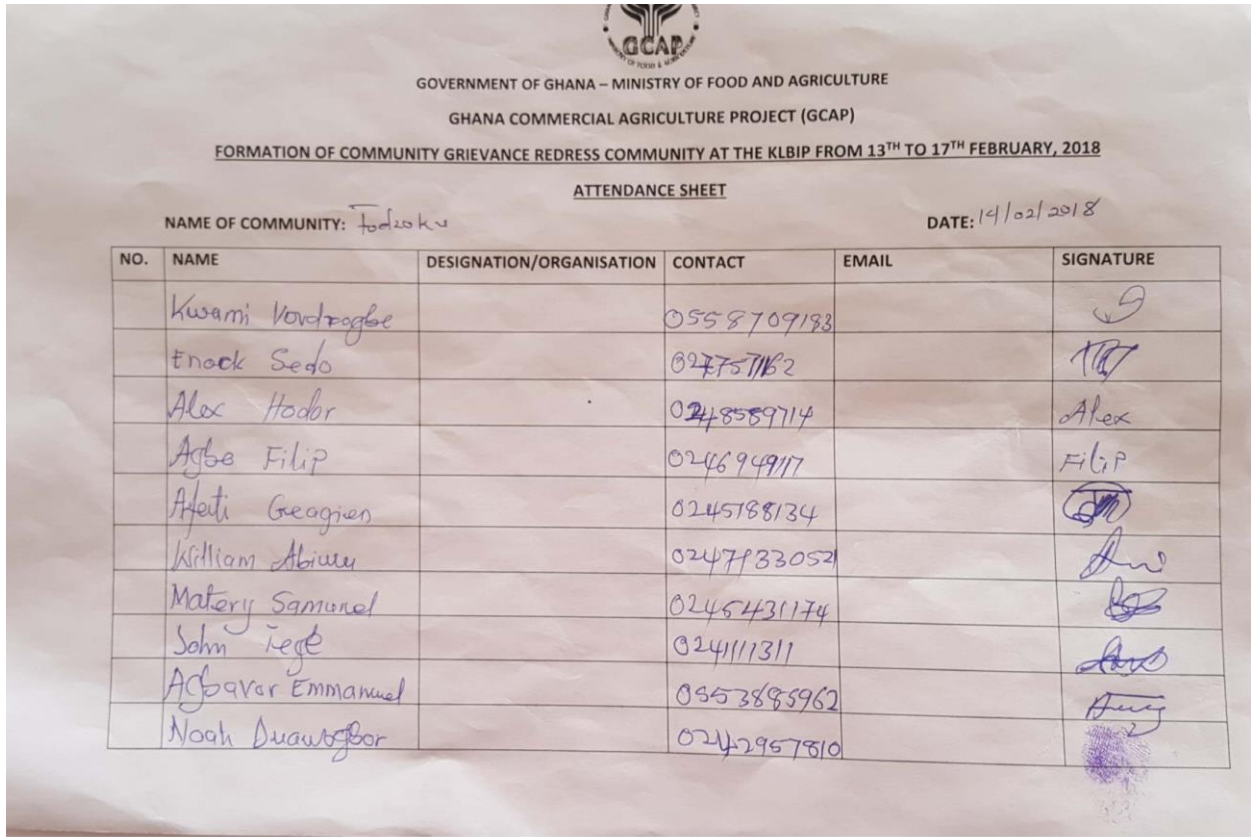 GCAP
MINISTRY OF FOOD & AGRICULTURE
GOVERNMENT OF GHANA – MINISTRY OF FOOD AND AGRICULTURE
GHANA COMMERCIAL AGRICULTURE PROJECT (GCAP)
FORMATION OF COMMUNITY GRIEVANCE REDRESS COMMUNITY AT THE KLBIP FROM 13TH TO 17TH FEBRUARY, 2018
ATTENDANCE SHEET
NAME OF COMMUNITY: Fodzoku DATE: 14/02/2018
NO. NAME DESIGNATION/ORGANISATION CONTACT EMAIL SIGNATURE
Kwami 0558709183
Enock Sedo
Alex Hodor 0248589714 Alex
Agbe Filip 0246949117 Filip
0245188134
William
Matery Samunel 0245431174
John Tege 0241111311
Agbavor Emmanuel 0553885962
Noah 0242957810